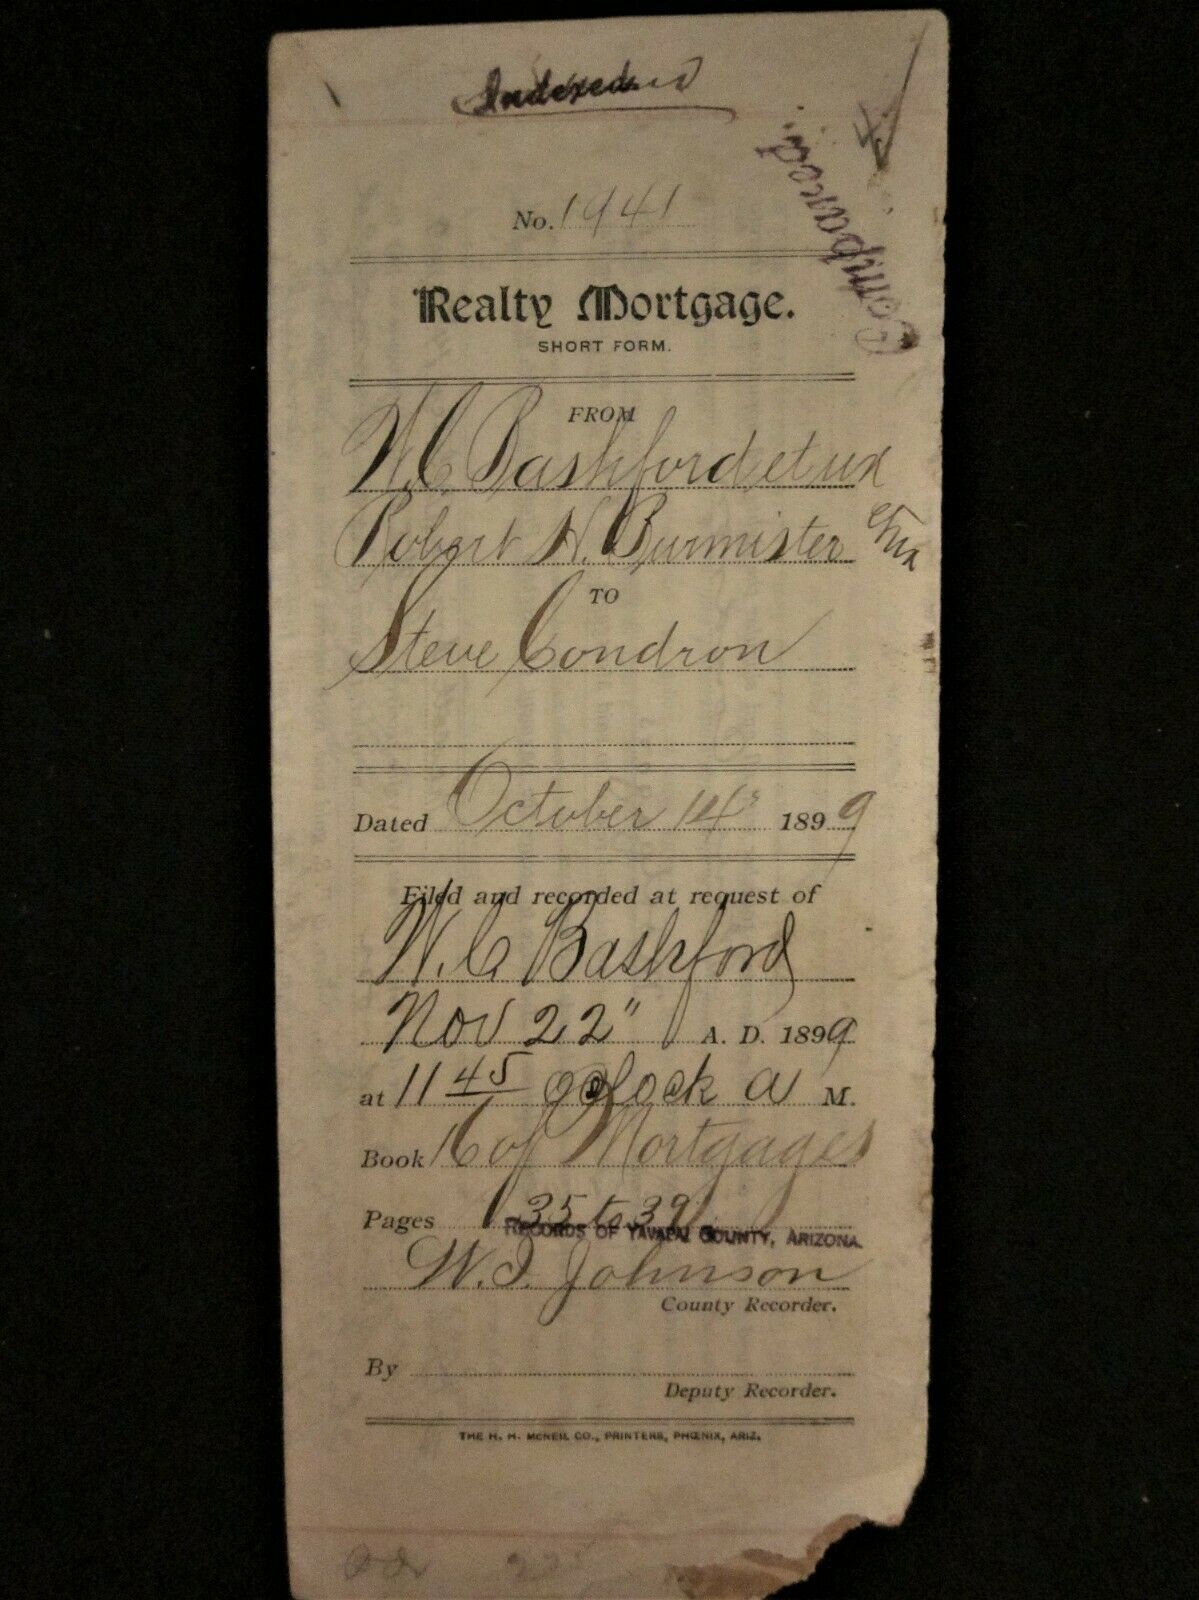 Indexed
Compared.
No. 1941
Realty Mortgage.
SHORT FORM.
FROM
W. C. Bashford et ux
Robert N. Burmister et ux
TO
Steve Condron
Dated October 14" 1899
Filed and recorded at request of
W. C. Bashford
Nov 22" A. D. 1899
at 11 45 oclock a M.
Book 16 of Mortgages
Pages 35 to 39
RECORDS OF YAVAPAI COUNTY, ARIZONA.
W. I. Johnson
County Recorder.
By
Deputy Recorder.
THE H. H. MCNEIL CO., PRINTERS, PHŒNIX, ARIZ.